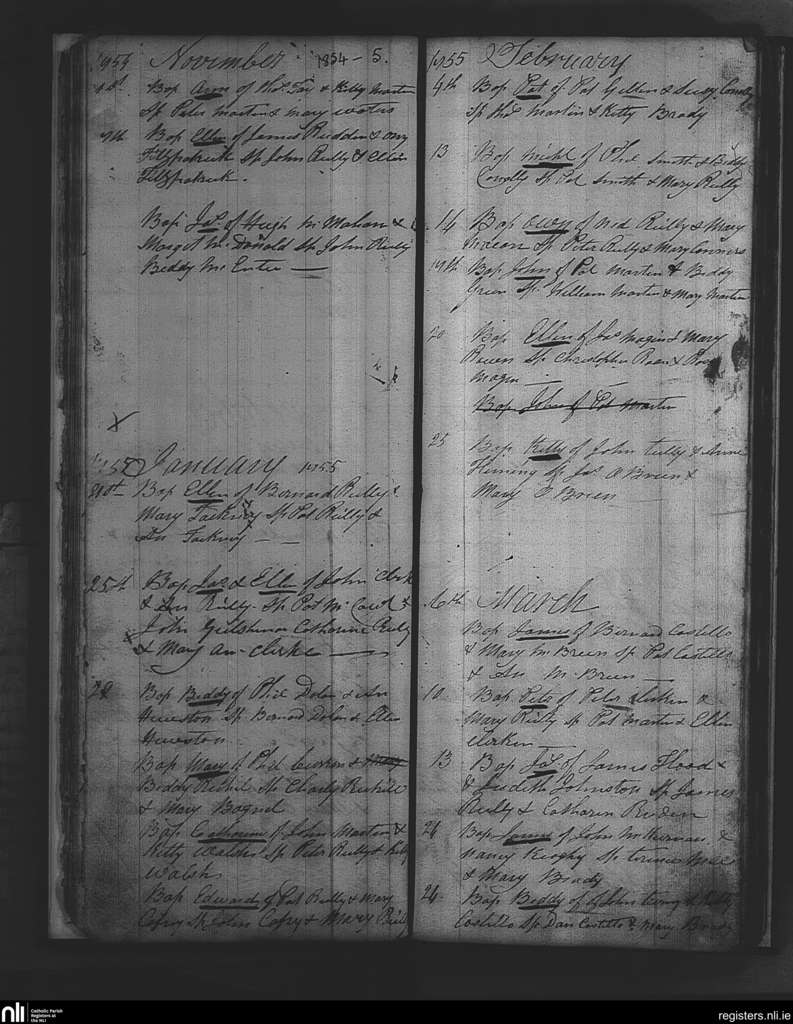 1854 November 1854-5.
1st Bap Ann of Thos Fay & Kitty Martin
Sp Peter Martin & Mary Waters
7th Bap Ellen of James Rudden & Any
Fitzpatrick Sp John Reilly & Ellen
Fitzpatrick.
Bap Jas of Hugh McMahon &
Margot McDonald Sp John Reilly
Biddy McEntee
1855 January 1855
21st Bap Ellen of Bernard Reilly &
Mary Sp Pat Reilly &
Ann
25th Bap Jas & Ellen of John Clerk
& Ann Reilly Sp Pat McCaul &
John Catharine Reilly
& Mary an Clerke
28 Bap Biddy of Phil Dolan & Ann
Hewston Sp Bernard Dolan & Ellen
Hewston
Bap Mary of Phil &
Biddy Sp Charly
& Mary Bagnel
Bap Catharine of John Martin &
Kitty Walshe Sp Peter Reilly & Kitty
Walshe
Bap Edward of Pat Reilly & Mary
Sp John & Mary Reilly
1855 February
4th Bap Pat of Pat & Connolly
Sp Thos Martin & Kitty Brady
13 Bap Michl of Phil Smith & Biddy
Conolly Sp Pat Smith & Mary Reilly
14 Bap Owen of Ned Reilly & Mary
Sp Peter Reilly & Mary Connors
17th Bap John of Pat Martin & Biddy
Green Sp William Martin & Mary Martin
20 Bap Ellen of Jas & Mary
Sp Christopher &
Bap John of Pat Martin
25 Bap Kitty of John Tully & Anne
Fleming Sp Jas O Brien &
Mary O Brien
6th March
Bap James of Bernard Costello
& Mary McBreen Sp Pat Costello
& Ann McBreen
10 Bap Pete of Peter Clerken &
Mary Reilly Sp Pat Martin & Ellen
Clerken
13 Bap Jas of James Flood &
& Judith Johnston Sp James
Reilly & Catharin
26 Bap James of John McKiernan &
Nancy Keoghy Sp Terence
& Mary Brady
26 Bap Biddy of of John & Kitty
Costello Sp Dan Costello & Mary Brady
nli
Catholic Parish
Registers at
the NLI
registers.nli.ie